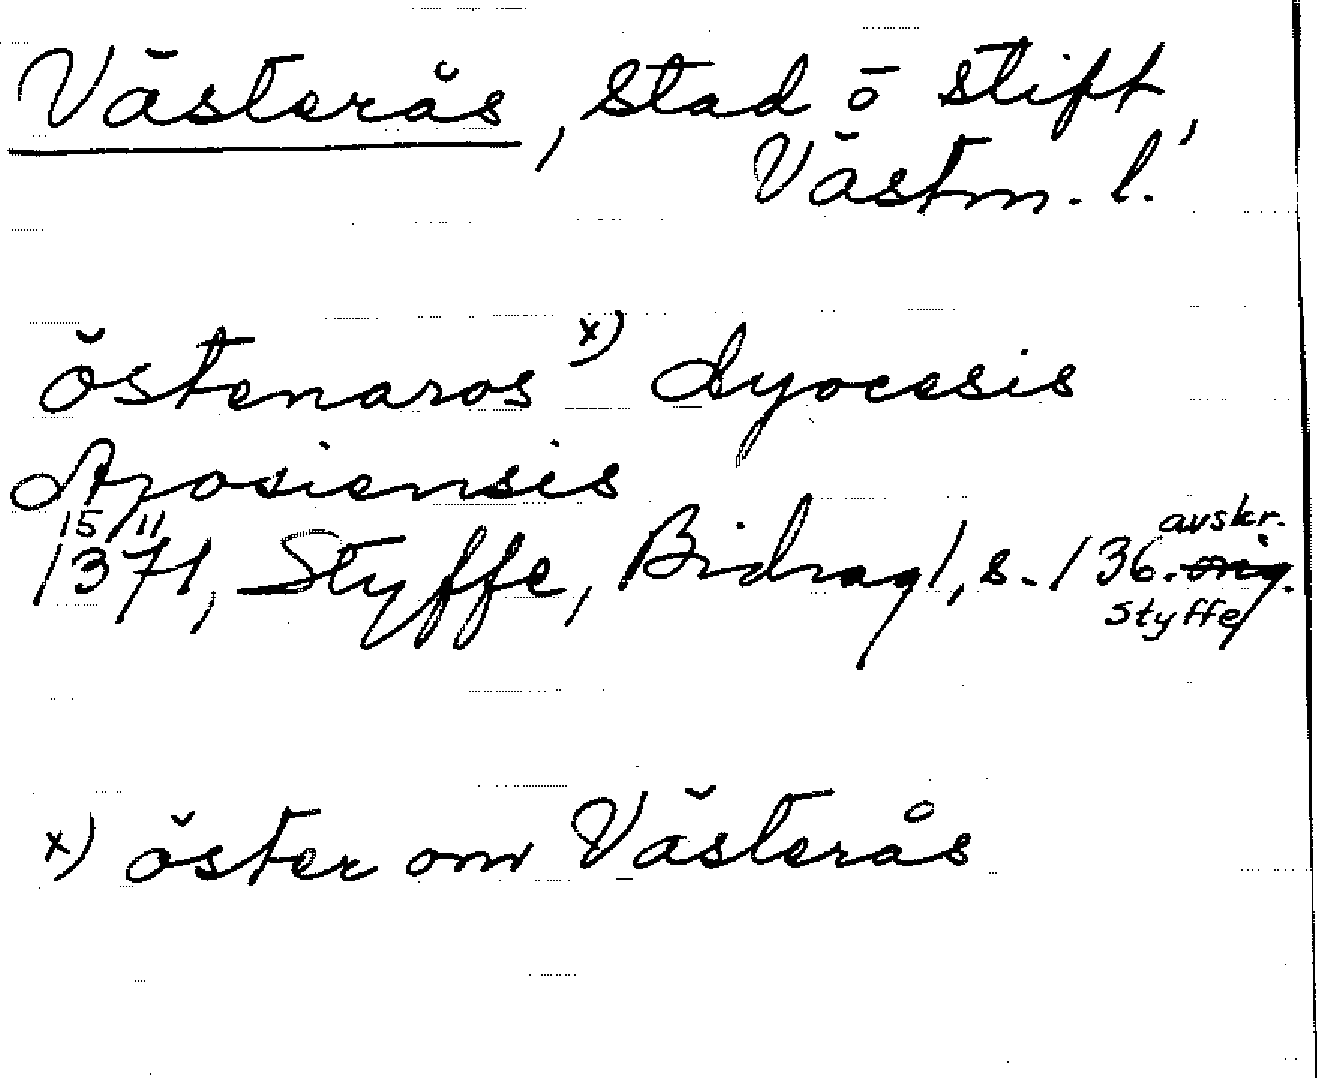 Västerås, stad o stift,
Västm. l.
östenaros x) dyocesis
Arosiensis
15/11
1371, Styffe, Bidrag 1, s. 136. orig. avskr.
Styffe
x) öster om Västerås